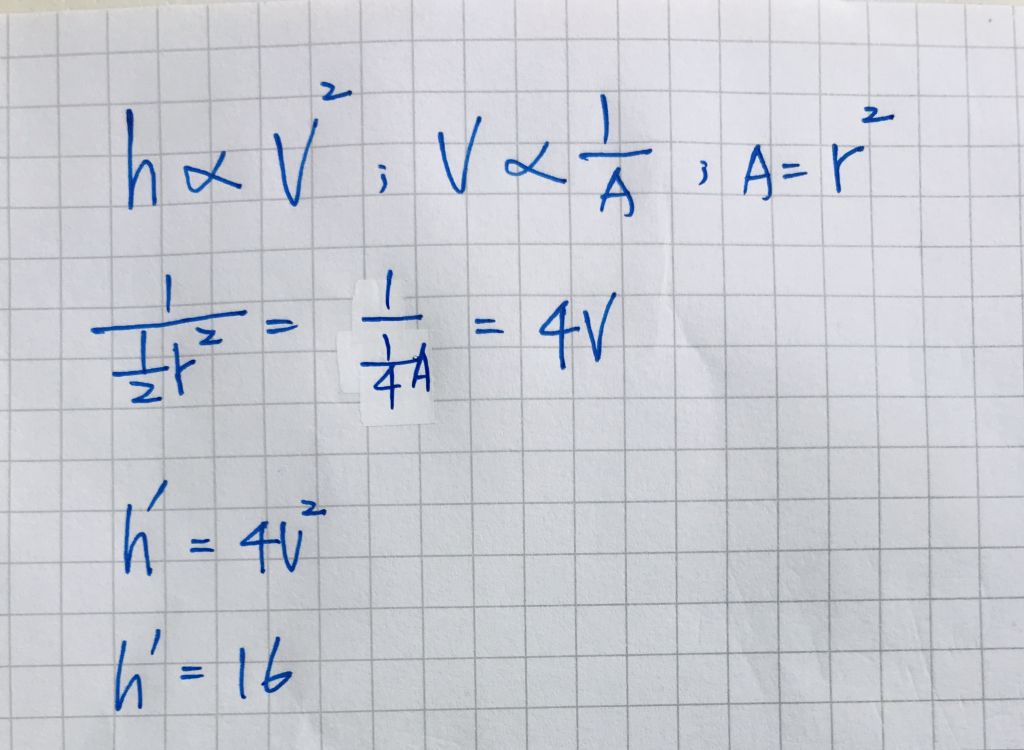 h ∝ V² ; V ∝ 1/A ; A = r²
1/(1/2 r²) = 1/(1/4 A) = 4V
h′ = 4V²
h′ = 16